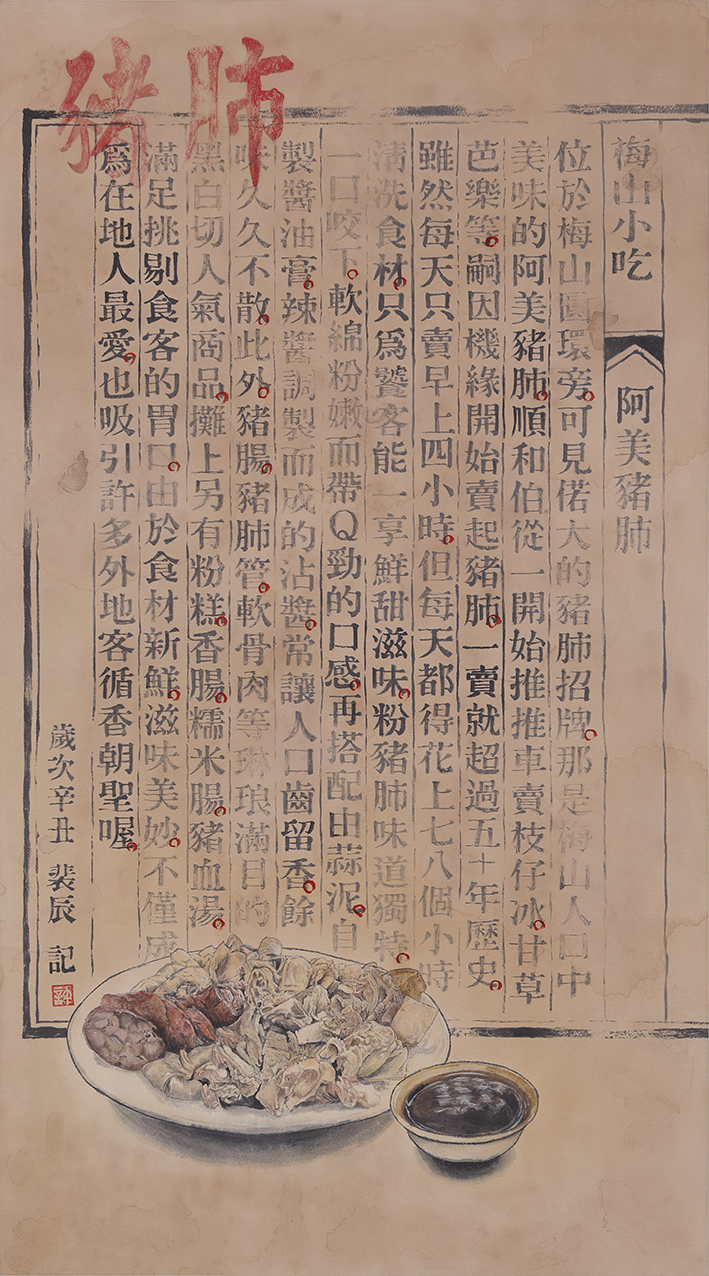 豬肺
梅山小吃 阿美豬肺
位於梅山圓環旁。可見偌大的豬肺招牌。那是梅山人口中
美味的阿美豬肺。順和伯從一開始推推車賣枝仔冰。甘草
芭樂等。嗣因機緣開始賣起豬肺。一賣就超過五十年歷史。
雖然每天只賣早上四小時。但每天都得花上七八個小時
清洗食材。只爲饕客能一享鮮甜滋味。粉豬肺味道獨特。
一口咬下。軟綿粉嫩而帶Q勁的口感。再搭配由蒜泥。自
製醬油膏。辣醬調製而成的沾醬。常讓人口齒留香。餘
味久久不散。此外。豬腸。豬肺管。軟骨肉等琳琅滿目的
黑白切人氣商品。攤上另有粉糕。香腸。糯米腸。豬血湯。
滿足挑剔食客的胃口。由於食材新鮮。滋味美妙。不僅成
爲在地人最愛。也吸引許多外地客循香朝聖喔。
歲次辛丑 裴辰 記